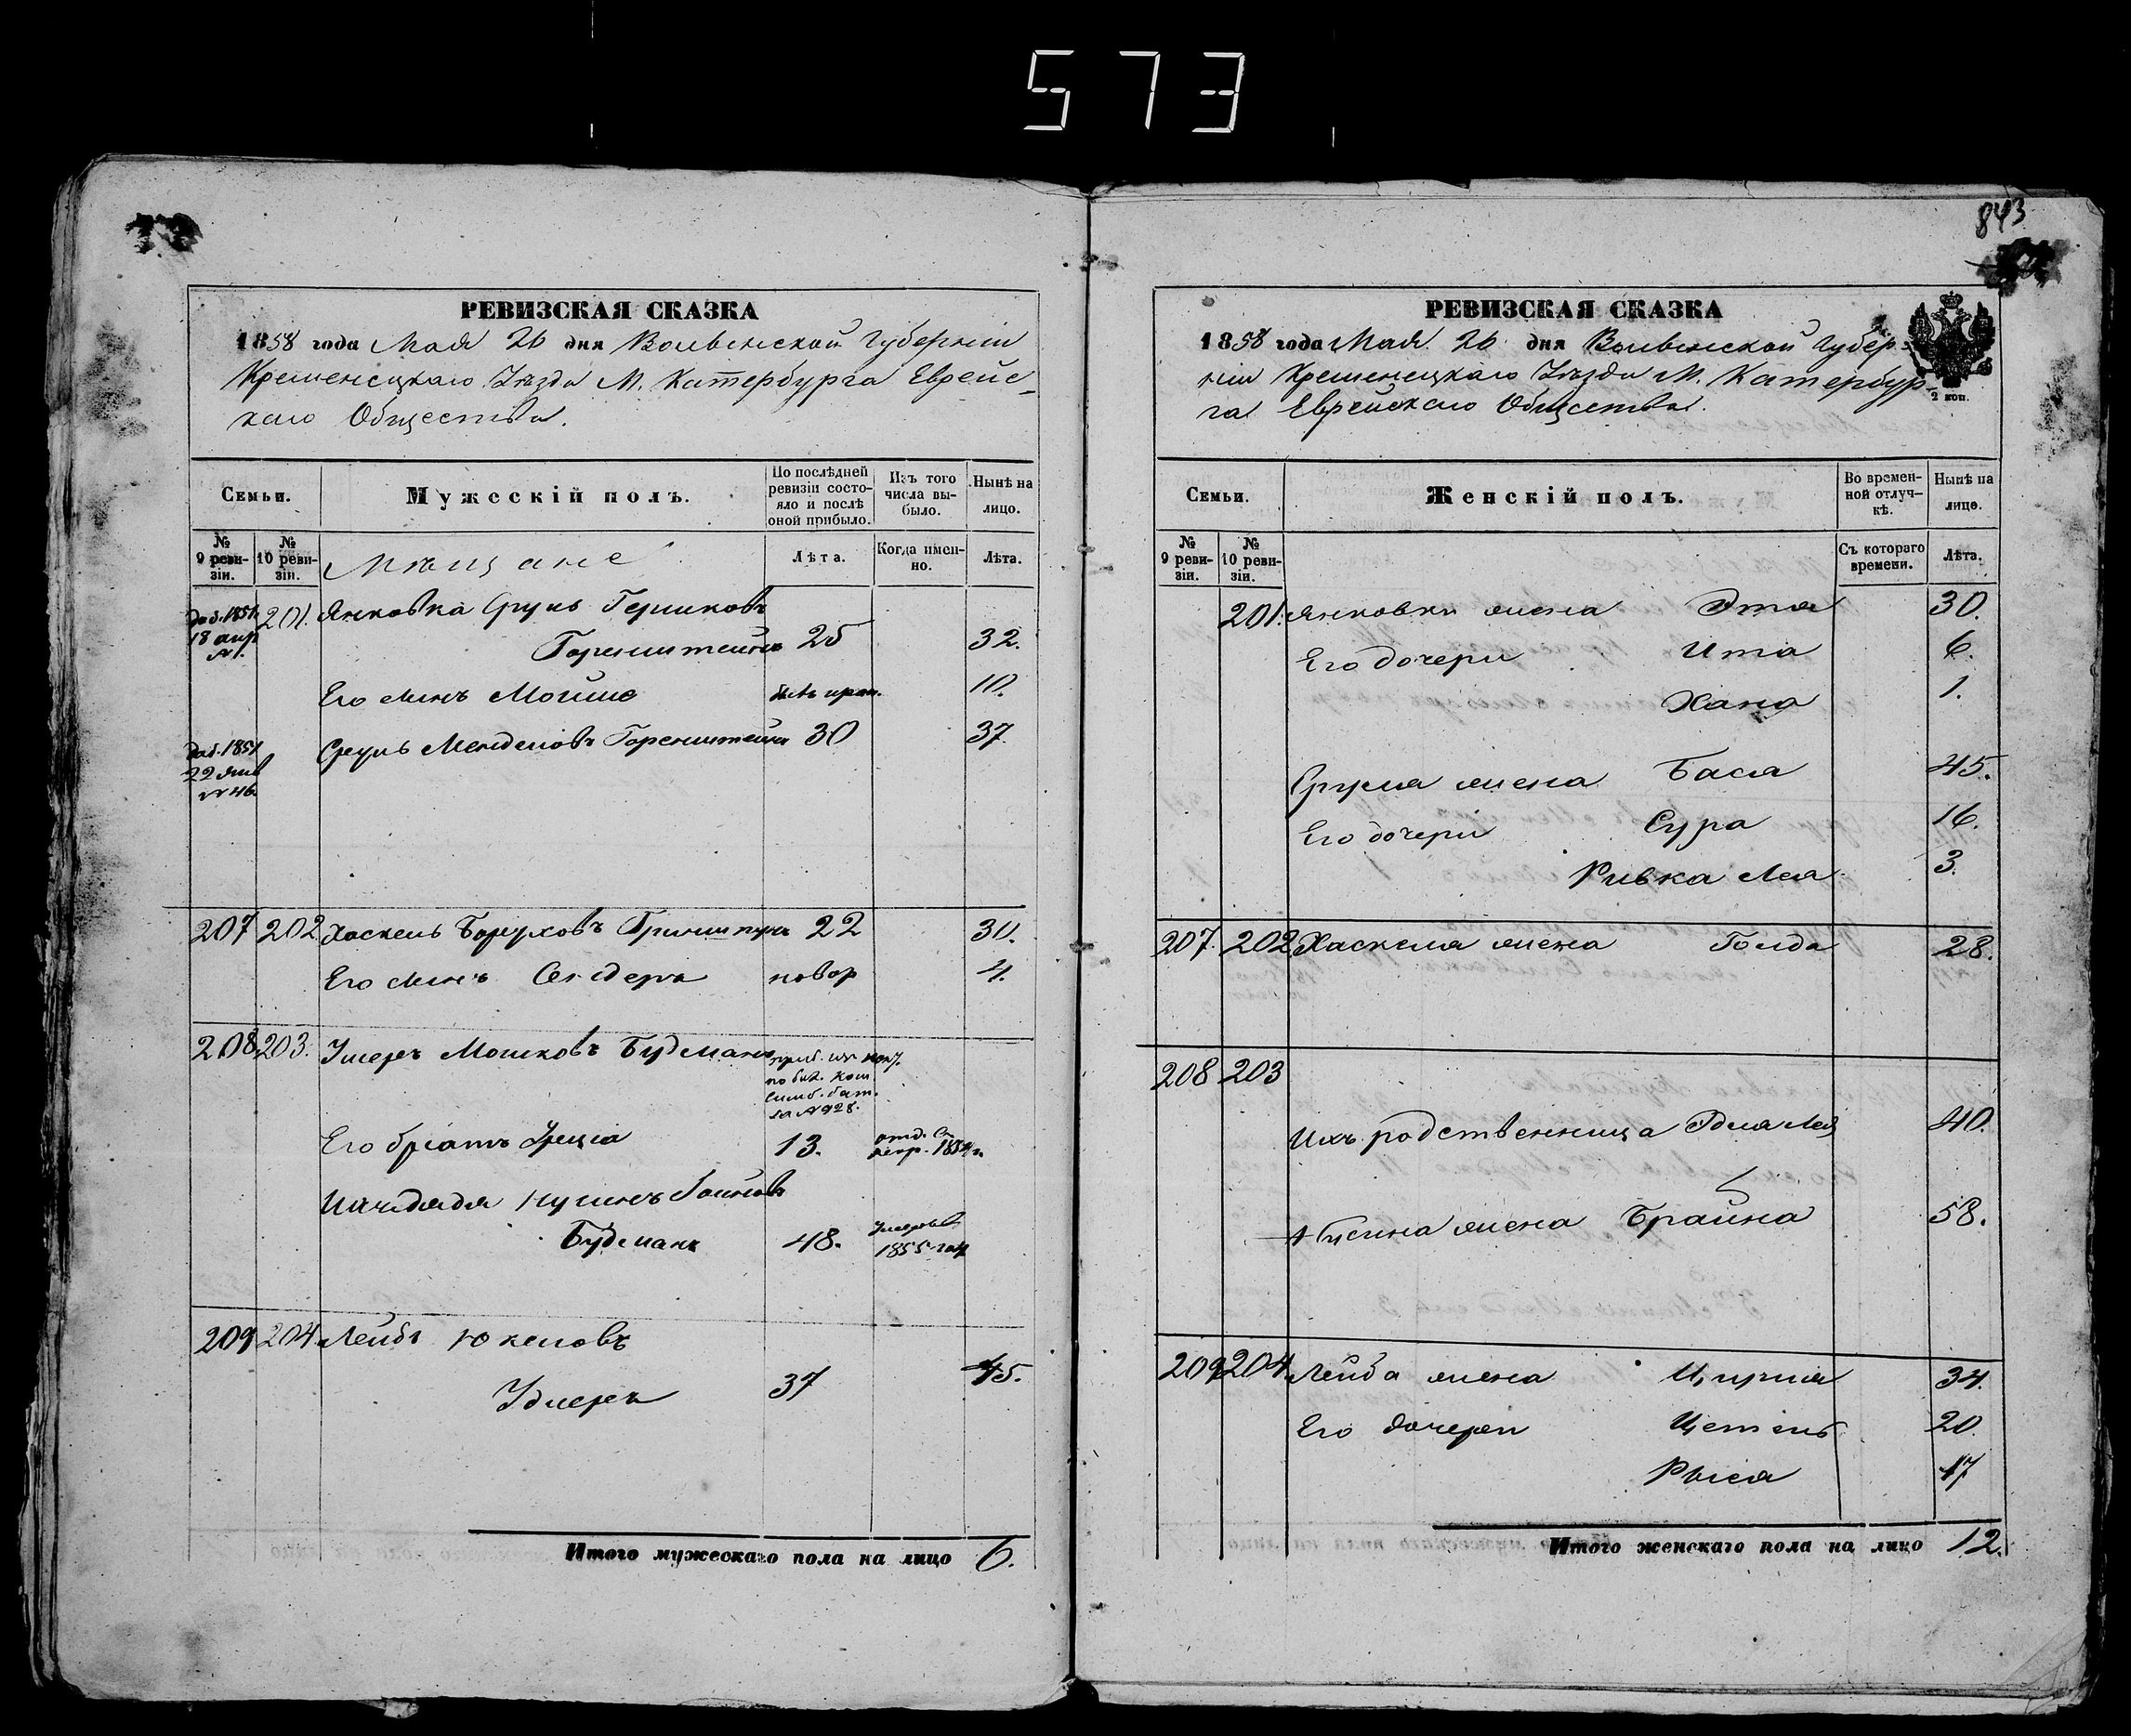 573
843
РЕВИЗСКАЯ СКАЗКА
1858 года Мая 26 дня Волынской Губерніи
Кременецкаго Уѣзда М. Катербурга Еврейс-
каго Общества.
Семьи.
Мужескій полъ.
По послѣдней ревизіи состояло и послѣ оной прибыло.
Изъ того числа выбыло.
Нынѣ на лицо.
№ 9 ревизіи.
№ 10 ревизіи.
Мѣщане
Лѣта.
Когда именно.
Лѣта.
доб. 1851 18 апр № 1. 201. Янковка Сруль Гершковъ
Горенштейнъ 25 32.
Его сынъ Мойше 10.
доб. 1851 22 янв № 46. Сруль Менделовъ Горенштейнъ 30 37.
207 202 Хаскель Боруховъ 22 30.
Его сынъ Сендеръ новор 4.
208 203. Мошковъ Будманъ
Его братъ 13.
Ихъ дядя
Будманъ 48. Умеръ въ 1855 году
209 204 Лейба Юкеловъ
37 45.
Итого мужескаго пола на лицо 6.
РЕВИЗСКАЯ СКАЗКА
1858 года Мая 26 дня Волынской Губер-
ніи Кременецкаго Уѣзда М. Катербур-
га Еврейскаго Общества.
2 коп.
Семьи.
Женскій полъ.
Во временной отлучкѣ.
Нынѣ на лицо.
№ 9 ревизіи.
№ 10 ревизіи.
Съ котораго времени.
Лѣта.
201. Янковки жена Этя 30.
Его дочери Ита 6.
Хана 1.
Сруля жена Бася 45.
Его дочери Сура 16.
Ривка Лея 3.
207. 202 Хаскеля жена Голда 28.
208 203
Ихъ родственница Эдля Лея 40.
жена Брайна 58.
209 204 Лейба жена Цирля 34.
Его дочери 20.
Рыся 17
Итого женскаго пола на лицо 12.